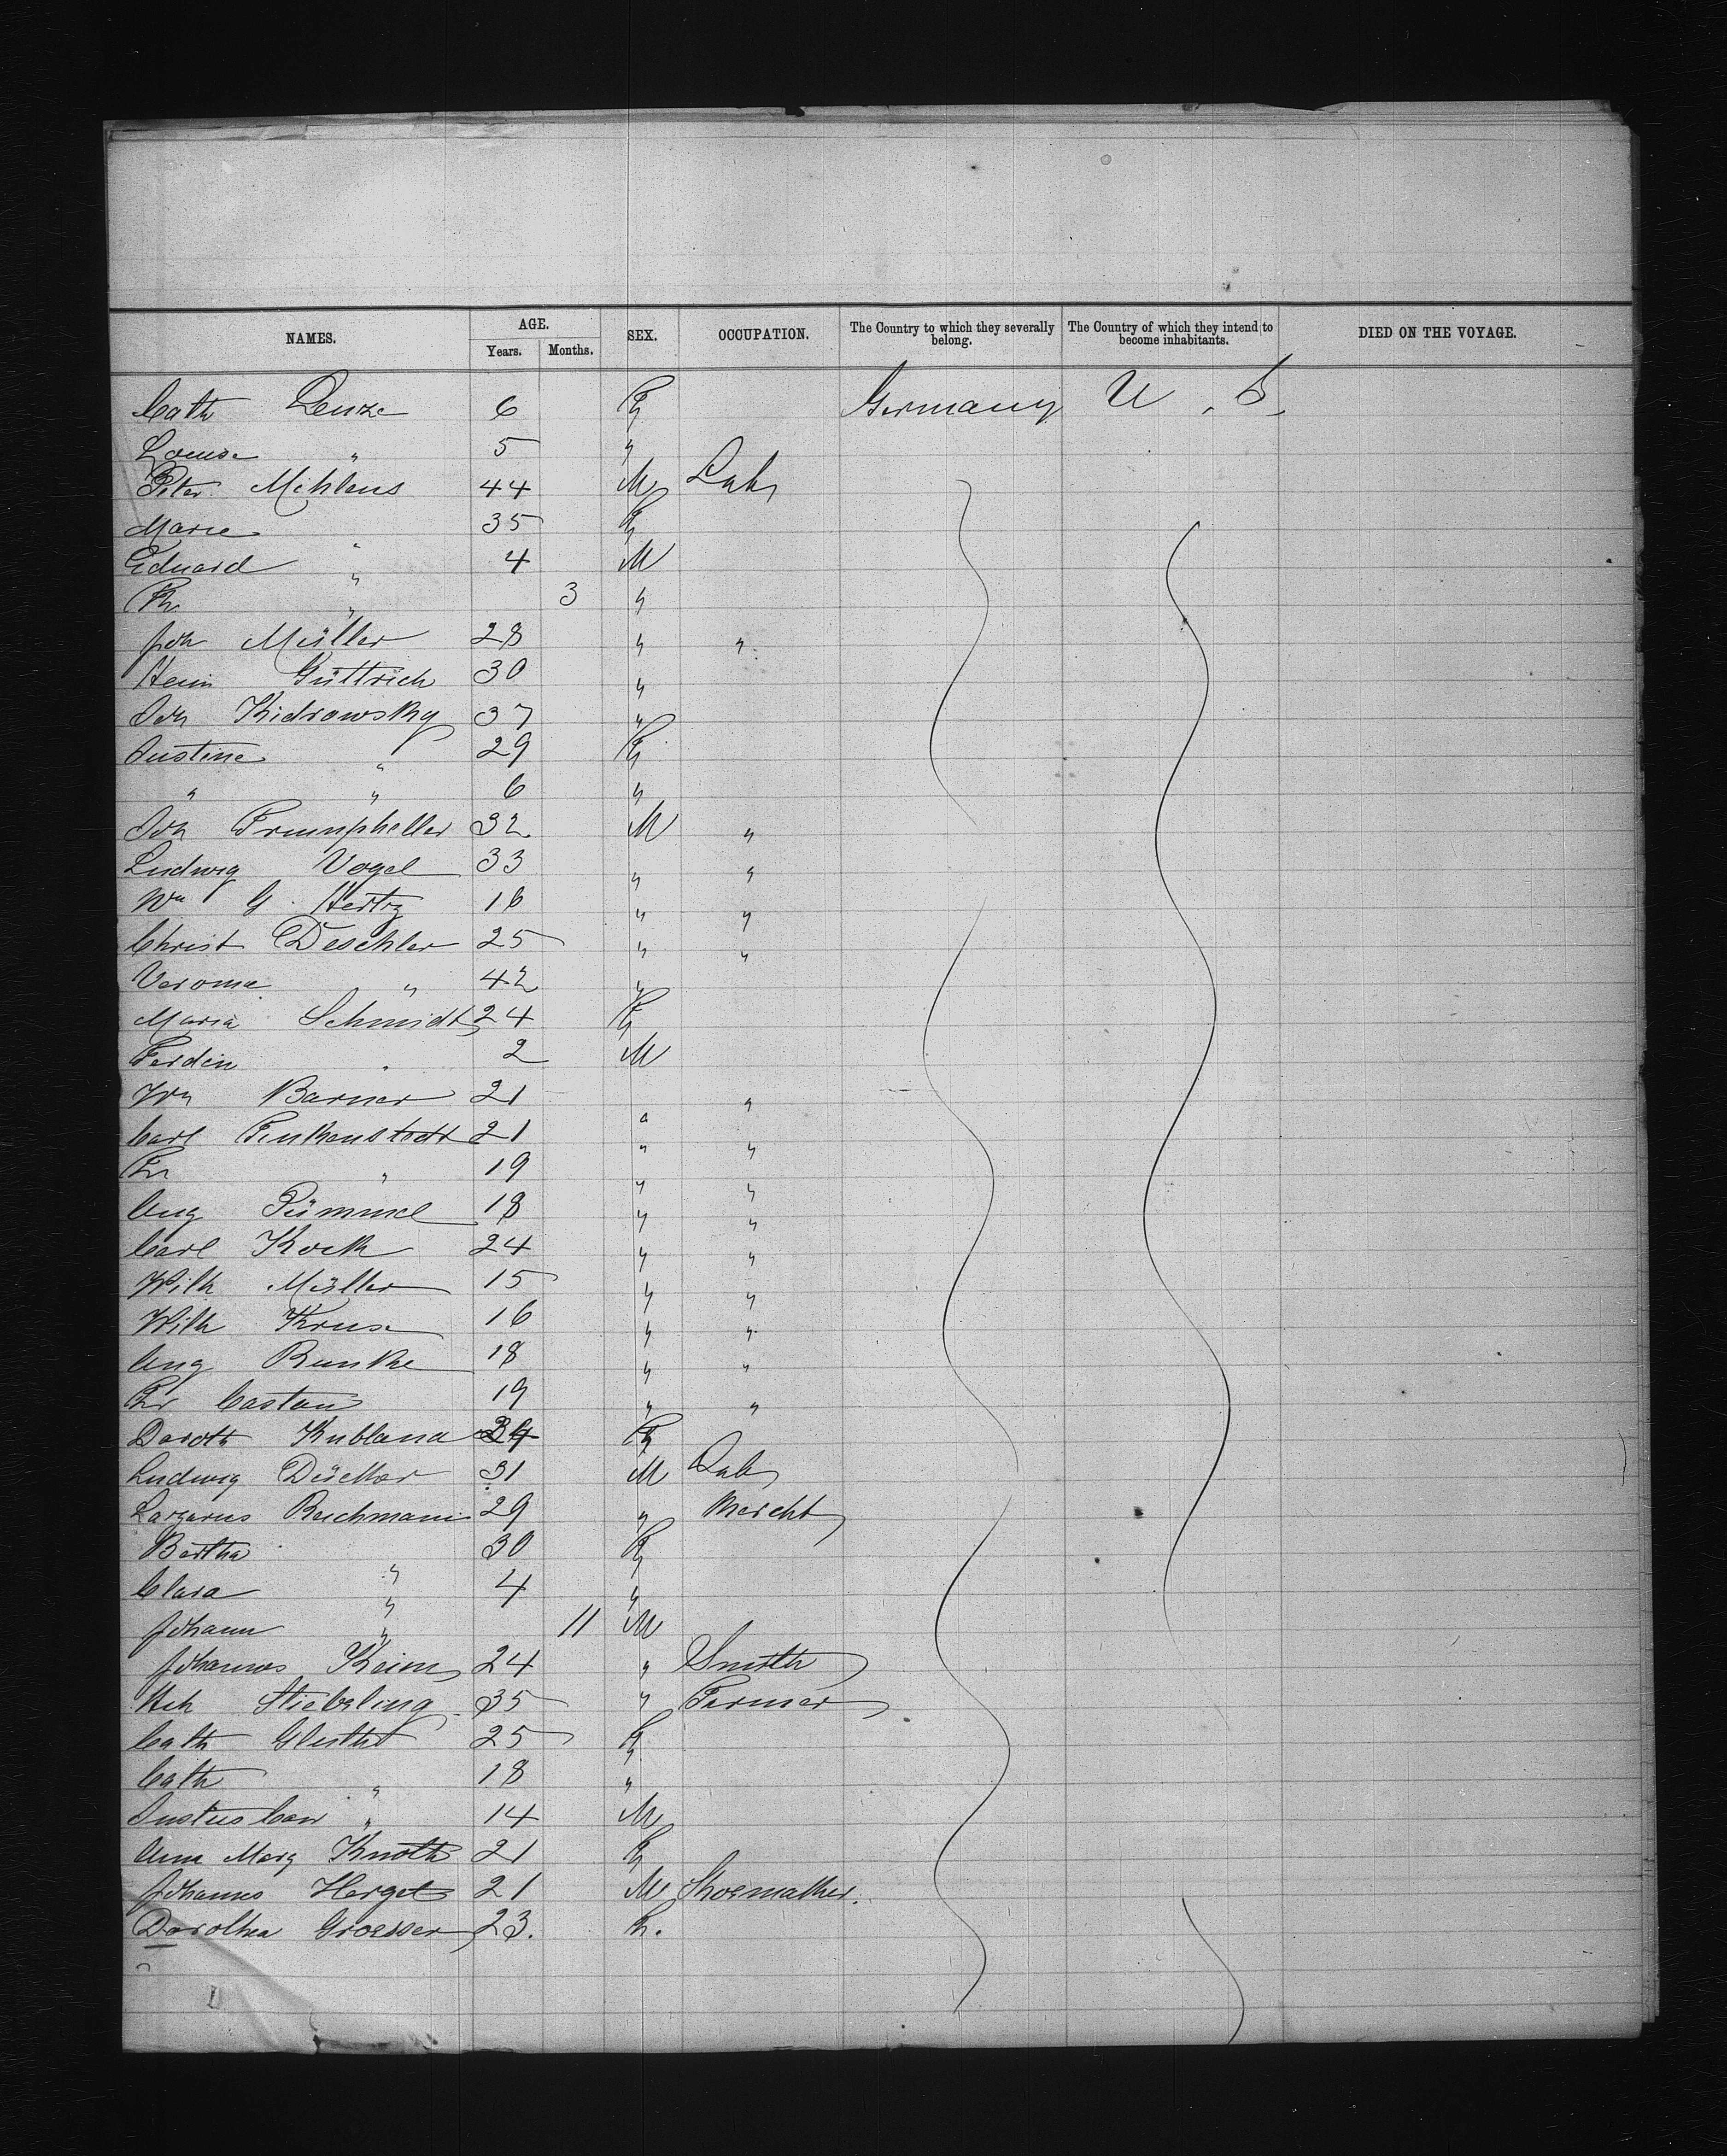 NAMES. AGE. SEX. OCCUPATION. The Country to which they severally belong. The Country of which they intend to become inhabitants. DIED ON THE VOYAGE.
Years. Months.
Cath Lenze 6 F Germany U. S.
Louise " 5 "
Peter Mihlens 44 M Lab
Marie " 35 F
Eduard " 4 M
Fr " 3 "
Joh Müller 28 " "
Hein Güttrich 30 "
Joh Kidrowsky 37 "
Justine " 29 F
" " 6 "
Joh Trumpheller 32 M "
Ludwig Vogel 33 " "
Wm G. Hertz 16 " "
Christ Deschler 25 " "
Verona " 42 "
Maria Schmidt 24 F
Ferdin " 2 M
Wm Barner 21 " "
Carl Finkenstedt 21 " "
Fr " 19 " "
Aug Pümmel 18 " "
Carl Koch 24 " "
Wilh Müller 15 " "
Wilh Kruse 16 " "
Aug Runke 18 " "
Fr Castan 19 " "
Doroth Kublana F
Ludwig 31 M Lab
Lazarus Reichmann 29 " Mercht
Bertha " 30 F
Clara " 4 "
Johann " 11 M
Johannes Keim 24 " Smith
Hch Stiebeling 35 " Farmer
Cath 25 F
Cath " 18 "
Justus Con " 14 M
Anna Marg Knoth 21 F
Johannes Herget 21 M Shoemaker.
Dorothea Groesser 23. F.